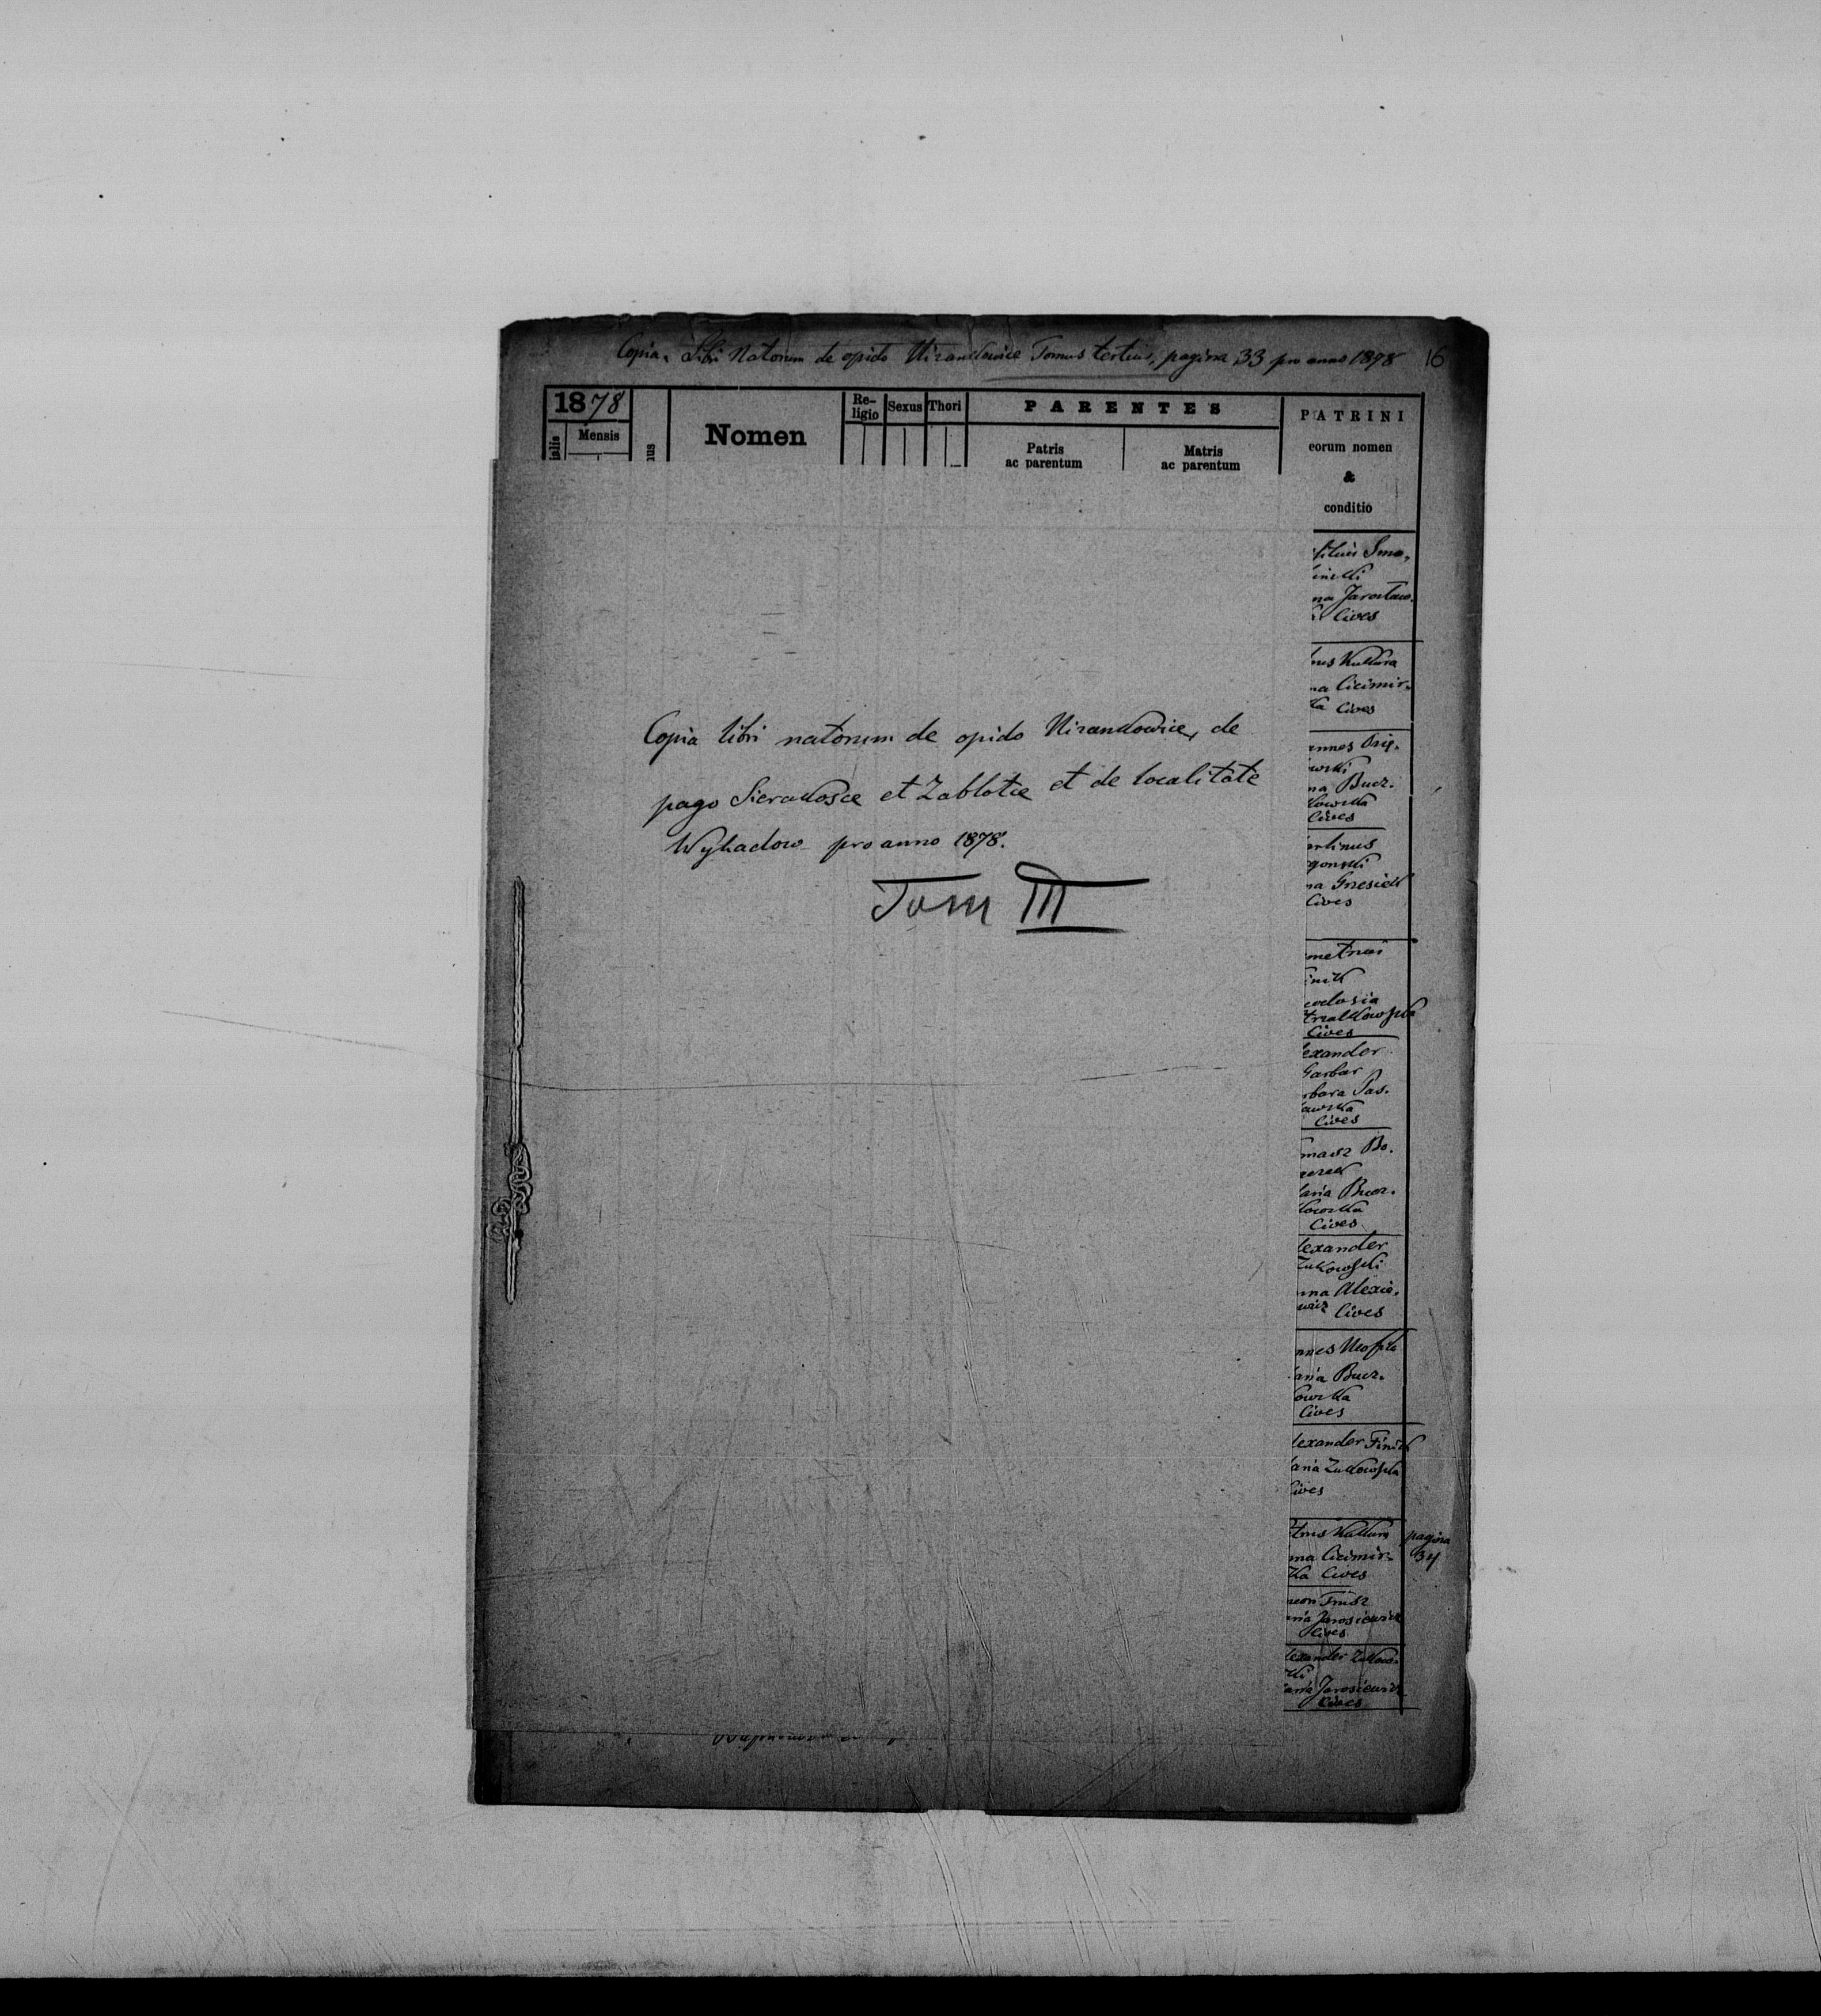 Copia. Libri Natorum de opido Nizankowice Tomus tertius, pagina 33 pro anno 1878 16
1878
Mensis
Nomen
Re-
ligio
Sexus
Thori
PARENTES
Patris
ac parentum
Matris
ac parentum
PATRINI
eorum nomen
&
conditio
Copia libri natorum de opido Nizankowice, de
pago Sierakosce et Zablotce et de localitate
Wyhadow pro anno 1878.
Tom III
Smo-
inski
na Jarosław
Cives
Kukura
na Cicimir-
ka Cives
annes Osip-
owski
na Bucz-
kowska
Cives
artinus
gonski
na Grzesiek
Cives
metrius
inik
eodosia
trzalkowska
Cives
exander
Garbar
rbara Pas-
awska
Cives
masz Bo-
aria Bucz-
kowska
Cives
lexander
Zukowski
nna Alexie-
wicz Cives
nnes
aria Bucz-
owska
Cives
lexander Finik
aria Zukowska
Cives
trus Kukura
na Cicimir-
ka Cives
pagina
34
meon
aria Jarosiewicz
Cives
lexander Zukow-
ski
aria Jarosiewicz
Cives